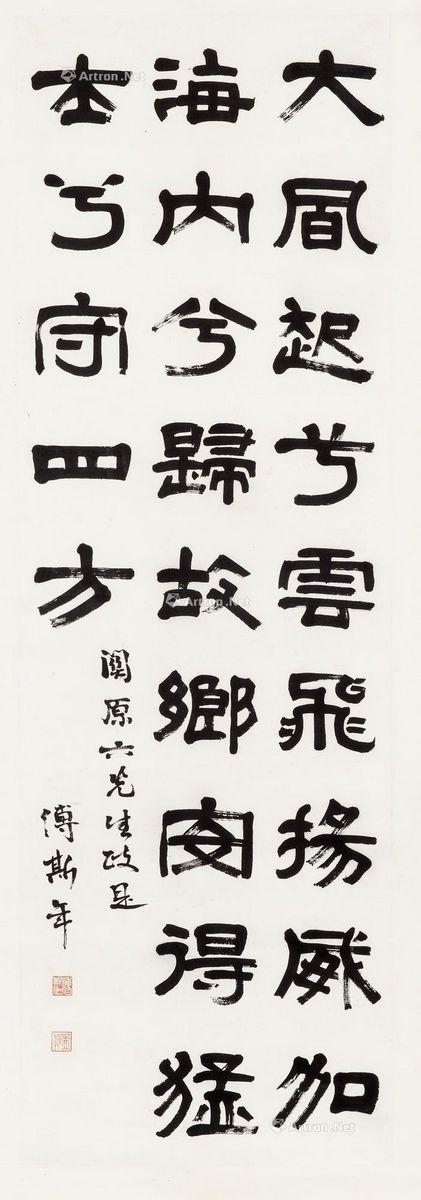 大風起兮雲飛揚威加
海内兮歸故鄉安得猛
士兮守四方
原六先生政是
傅斯年
Artron.Net
Artron.Net
Artron.Net
Artron.Net